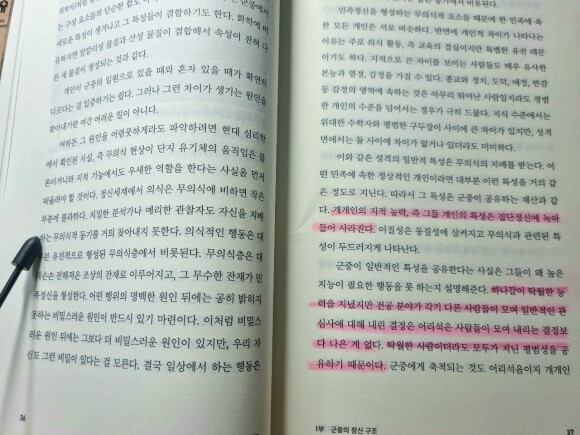 는 구성 요소들의 단순한 합도 아
새로운 특성이 생겨나고 그 특성들이 결합하기도 한다. 화학에 비
유하자면 알칼리성 물질과 산성 물질이 결합해서 속성이 전혀 다
른 새 물질이 생성되는 것과 같다.
개인이 군중의 일원으로 있을 때와 혼자 있을 때가 확연히
다르다는 걸 입증하기는 쉽다. 그러나 그런 차이가 생기는 원인을
찾아내기란 여간 어려운 일이 아니다.
여하튼 그 원인을 어렴풋하게라도 파악하려면 현대 심리학
에서 확인된 사실, 즉 무의식 현상이 단지 유기체의 움직임은 물
론이거니와 지적 기능에서도 우세한 역할을 한다는 사실을 먼저
떠올려야 할 것이다. 정신세계에서 의식은 무의식에 비하면 작은
부분에 불과하다. 치밀한 분석가나 예리한 관찰자도 자신을 지배
하는 무의식적 동기를 거의 찾아내지 못한다. 의식적인 행동은 대
부분 유전적으로 형성된 무의식층에서 비롯된다. 무의식층은 대
대손손 전해져온 조상의 잔재로 이루어지고, 그 무수한 잔재가 민
족정신을 형성한다. 어떤 행위의 명백한 원인 뒤에는 공히 밝히지
못하는 비밀스러운 원인이 반드시 있기 마련이다. 이처럼 비밀스
러운 원인 뒤에는 그보다 더 비밀스러운 원인이 있지만, 우리 자
신도 그런 비밀이 있다는 걸 모른다. 결국 일상에서 하는 행동은
36
동기에서 비롯된다.
민족정신을 형성하는 무의식적 요소들 때문에 한 민족에 속
한 모든 개인은 서로 비슷하다. 반면에 개인적 차이가 나타나는
이유는 주로 의식 활동, 즉 교육의 결실이지만 특별한 유전 때문
이기도 하다. 지적으로 큰 차이를 보이는 사람들도 매우 유사한
본능과 열정, 감정을 가질 수 있다. 종교와 정치, 도덕, 애정, 반감
등 감정의 영역에 속하는 것은 아무리 뛰어난 사람일지라도 평범
한 개인의 수준을 넘어서는 경우가 극히 드물다. 지식 수준에서는
위대한 수학자와 평범한 구두장이 사이에 큰 차이가 있지만, 성격
면에서는 둘 사이에 차이가 없거나 있더라도 미미하다.
이와 같은 성격의 일반적 특성은 무의식의 지배를 받는다. 어
떤 민족에 속한 정상적인 개인이라면 대부분 이런 특성을 거의 같
은 정도로 지닌다. 따라서 그 특성은 군중이 공유하는 재산과 같
다. 개개인의 지적 능력, 즉 그들 개인의 특성은 집단정신에 녹아
들어 사라진다. 이질성은 동질성에 삼켜지고 무의식과 관련된 특
성이 두드러지게 나타난다.
군중이 일반적인 특성을 공유한다는 사실은 그들이 왜 높은
지능이 필요한 행동을 못 하는지 설명해준다. 하나같이 탁월한 능
력을 지녔지만 전공 분야가 각기 다른 사람들이 모여 일반적인 관
심사에 대해 내린 결정은 어리석은 사람들이 모여 내리는 결정보
다 나은 게 없다. 탁월한 사람이더라도 모두가 지닌 평범성을 공
유하기 때문이다. 군중에게 축적되는 것도 어리석음이지 개개인
1부 군중의 정신 구조
37